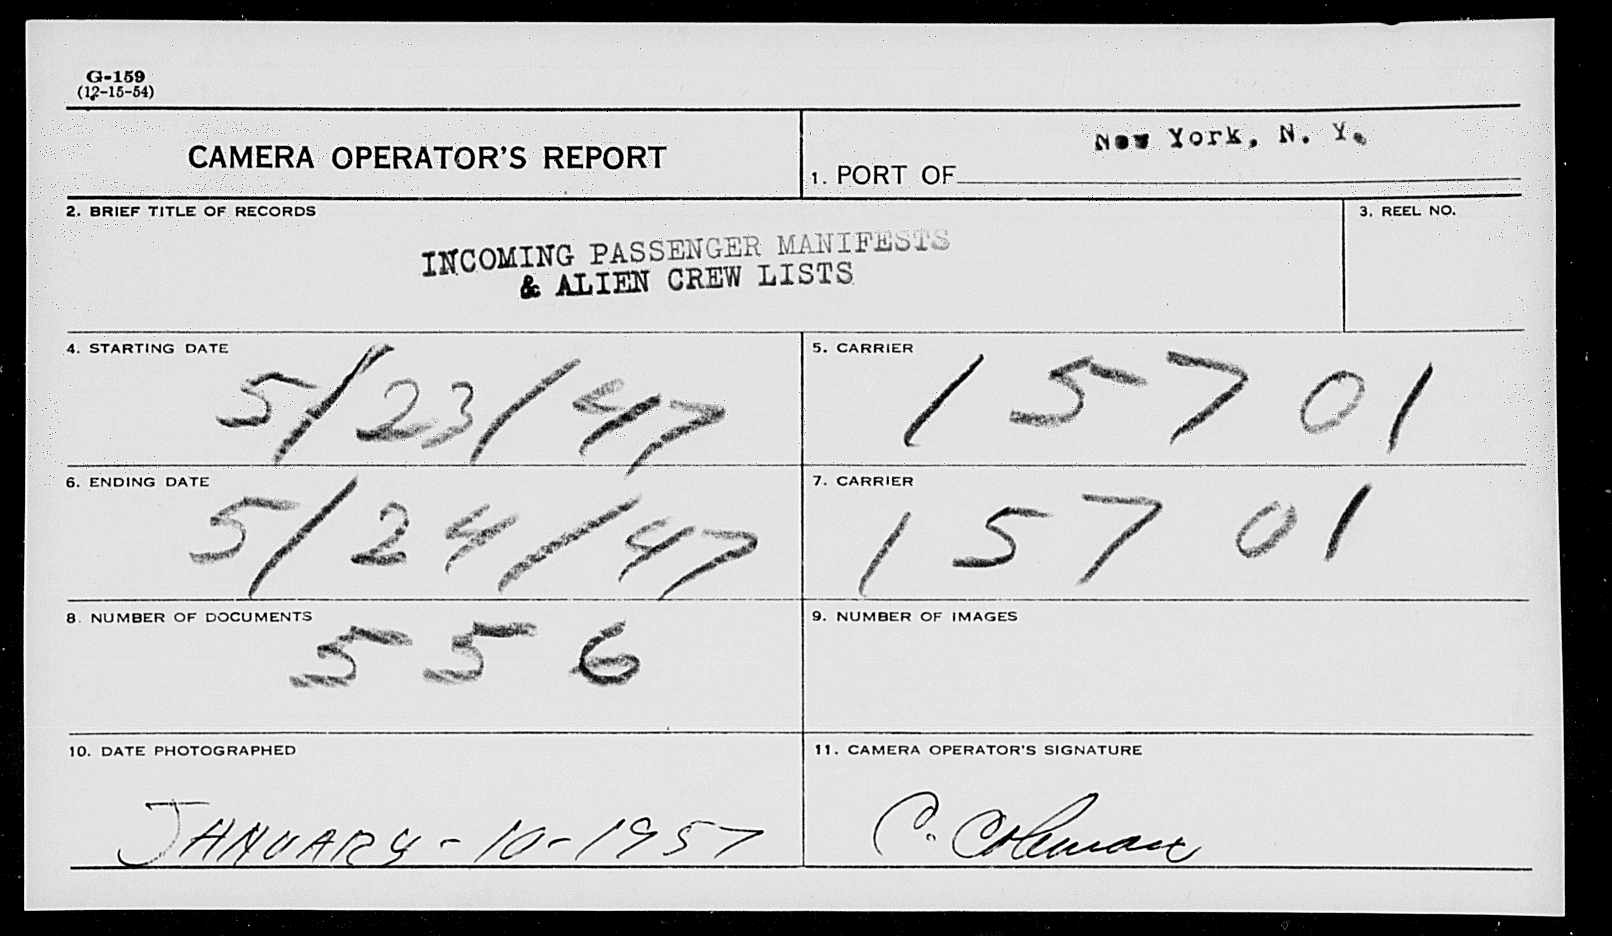 G-159
(12-15-54)
CAMERA OPERATOR'S REPORT
1. PORT OF New York, N. Y.
2. BRIEF TITLE OF RECORDS
3. REEL NO.
INCOMING PASSENGER MANIFESTS
& ALIEN CREW LISTS
4. STARTING DATE
5/23/47
5. CARRIER
15701
6. ENDING DATE
5/24/47
7. CARRIER
15701
8. NUMBER OF DOCUMENTS
556
9. NUMBER OF IMAGES
10. DATE PHOTOGRAPHED
JANUARY-10-1957
11. CAMERA OPERATOR'S SIGNATURE
C. Coleman